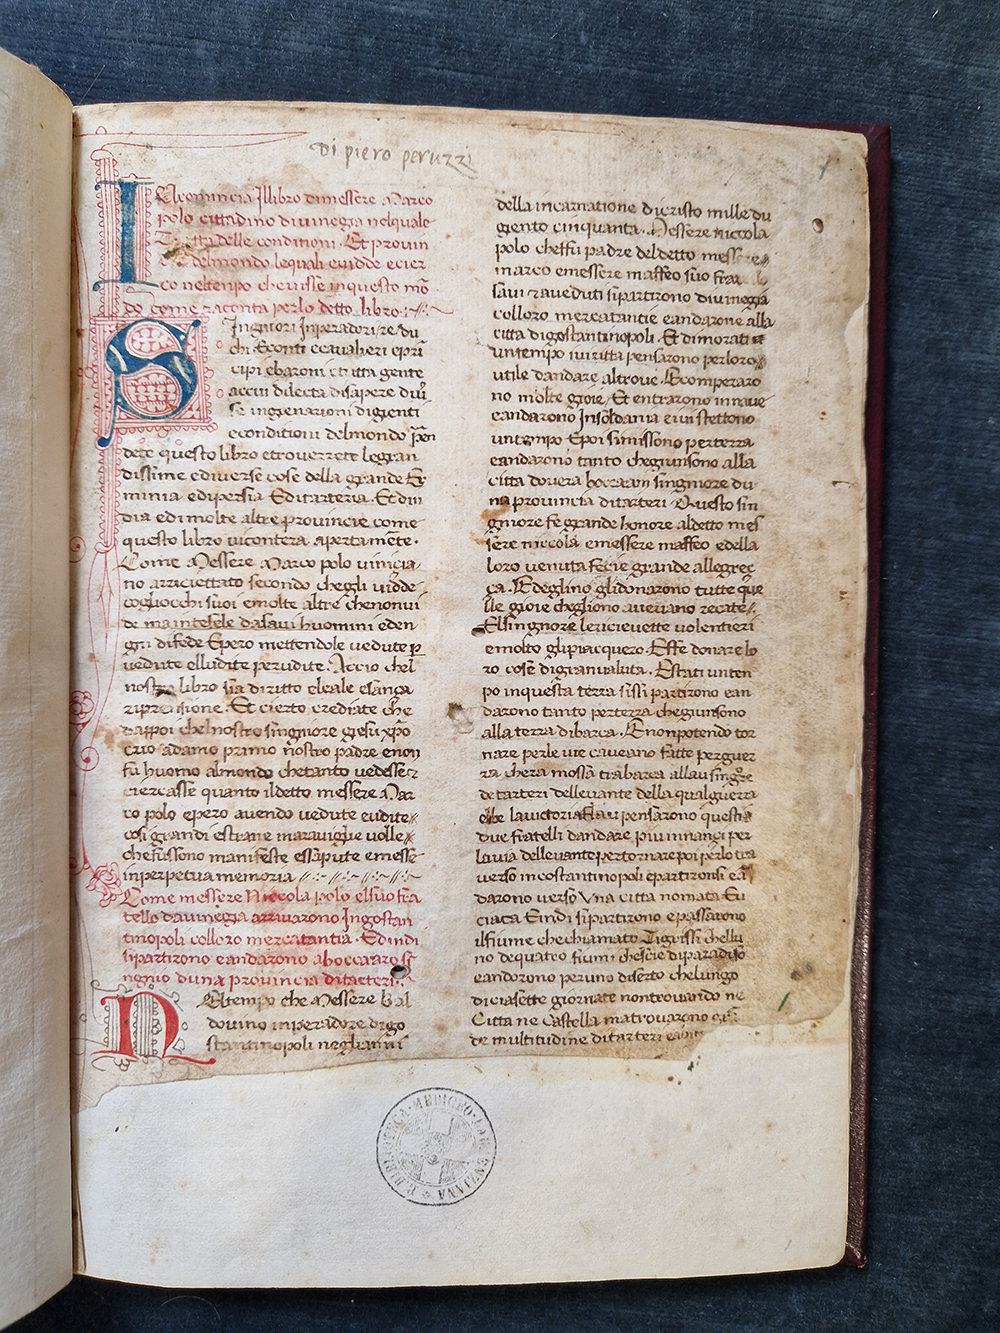 di piero peruzzi
Incomincia Illibro dimessere Marco
polo cittadino divinegia nelquale
delle conditioni. Et provin
delmondo lequali evidde ecier
co neltenpo chevisse inquesto mō
do come racconta perlo detto libro
Singniori Inperadori re du
chi Econti ecavalieri epri
cipi ebaroni etutta gente
acuui dilecta disapere diu
se ingienarioni digienti
econditioni delmondo pen
dete questo libro etroverrete legran
dissime ediverse cose della grande Er
minia edipersia Editarteria. Et din
dia edimolte altre provincie come
questo libro viconterà apertamēte.
Come Messere Marco polo vinizia
no arriciettato secondo chegli vidde
cogliocchi suoi emolte altre chenonvi
de maintesele dasavi huomini eden
gni difede Epero mettendole vedute p
vedute elludite perudite. Accio chel
nostro libro sia diritto eleale esança
riprensione. Et cierto crediate che
dappoi chelnostro singniore giesu xpo
crio adamo primo nostro padre enon
fu huomo almondo chetanto vedesse
ciercasse quanto ildetto messere Mar
co polo epero avendo vedute eudite
così grandi estrane maraviglie volle
chefussono manifeste essapute emesse
inperpetua memoria
Come messere Niccola polo elsuo fra
tello davinegia arrivarono Ingostan
tinopoli colloro mercatantia. Edindi
sipartirono eandarono aboccaaro si
ngnio duna provincia ditarteri.
Neltempo che Messere bal
dovino inperadore digo
stantinopoli neglianni
della incarnatione dicristo mille du
giento cinquanta. Messere niccola
polo cheffu padre deldetto messere
marco emessere maffeo suo fra
savi 7 aveduti sipartirono divinegia
colloro mercatantie eandarone alla
citta digostantinopoli. Et dimorati
untempo iviritta pensarono perloro
utile dandare altrove. Ecomperaro
no molte gioie. Et entrarono innave
eandarono Insoldania eivistettono
untempo Epoi simissono perterra
eandarono tanto chegiunsono alla
citta dovera boccaam singniore du
na provincia ditarteri. Questo sin
gniore fe grande honore aldetto mes
sere niccola emessere maffeo edella
loro venuta fecie grande allegrec
ça. Edeglino glidonarono tutte que
lle gioie chegliono avevano recate.
Elsingniore lericievette volentieri
emolto glipiacquero. Effe donare lo
ro cose digranvaluta. Estati unten
po inquesta terra sissi partirono ean
darono tanto perterra chegiunsono
alla terra dibarca. Enonpotendo tor
nare perle vie caveano fatte perguer
ra chera mossa trabarca allau singre
de tarteri dellevante della qualguerra
ebbe lavictoria pensarono questi
due fratelli dandare piu innançi per
lavia dellevante pertornare poi perlo tra
verso incostantinopoli epartironsi
darono verso Una citta nomata Eu
ciaca Eindi sipartirono epassarono
ilfiume chechiamato Tigrissi chellu
no dequatro fiumi chescie diparadiso
eandorono peruno diserto chelungo
diciasette giornate nontrovando ne
Citta ne Castella matrovarono
de multitudine ditarteri
R. BIBLIOTECA MEDICEO LAURENZIANA